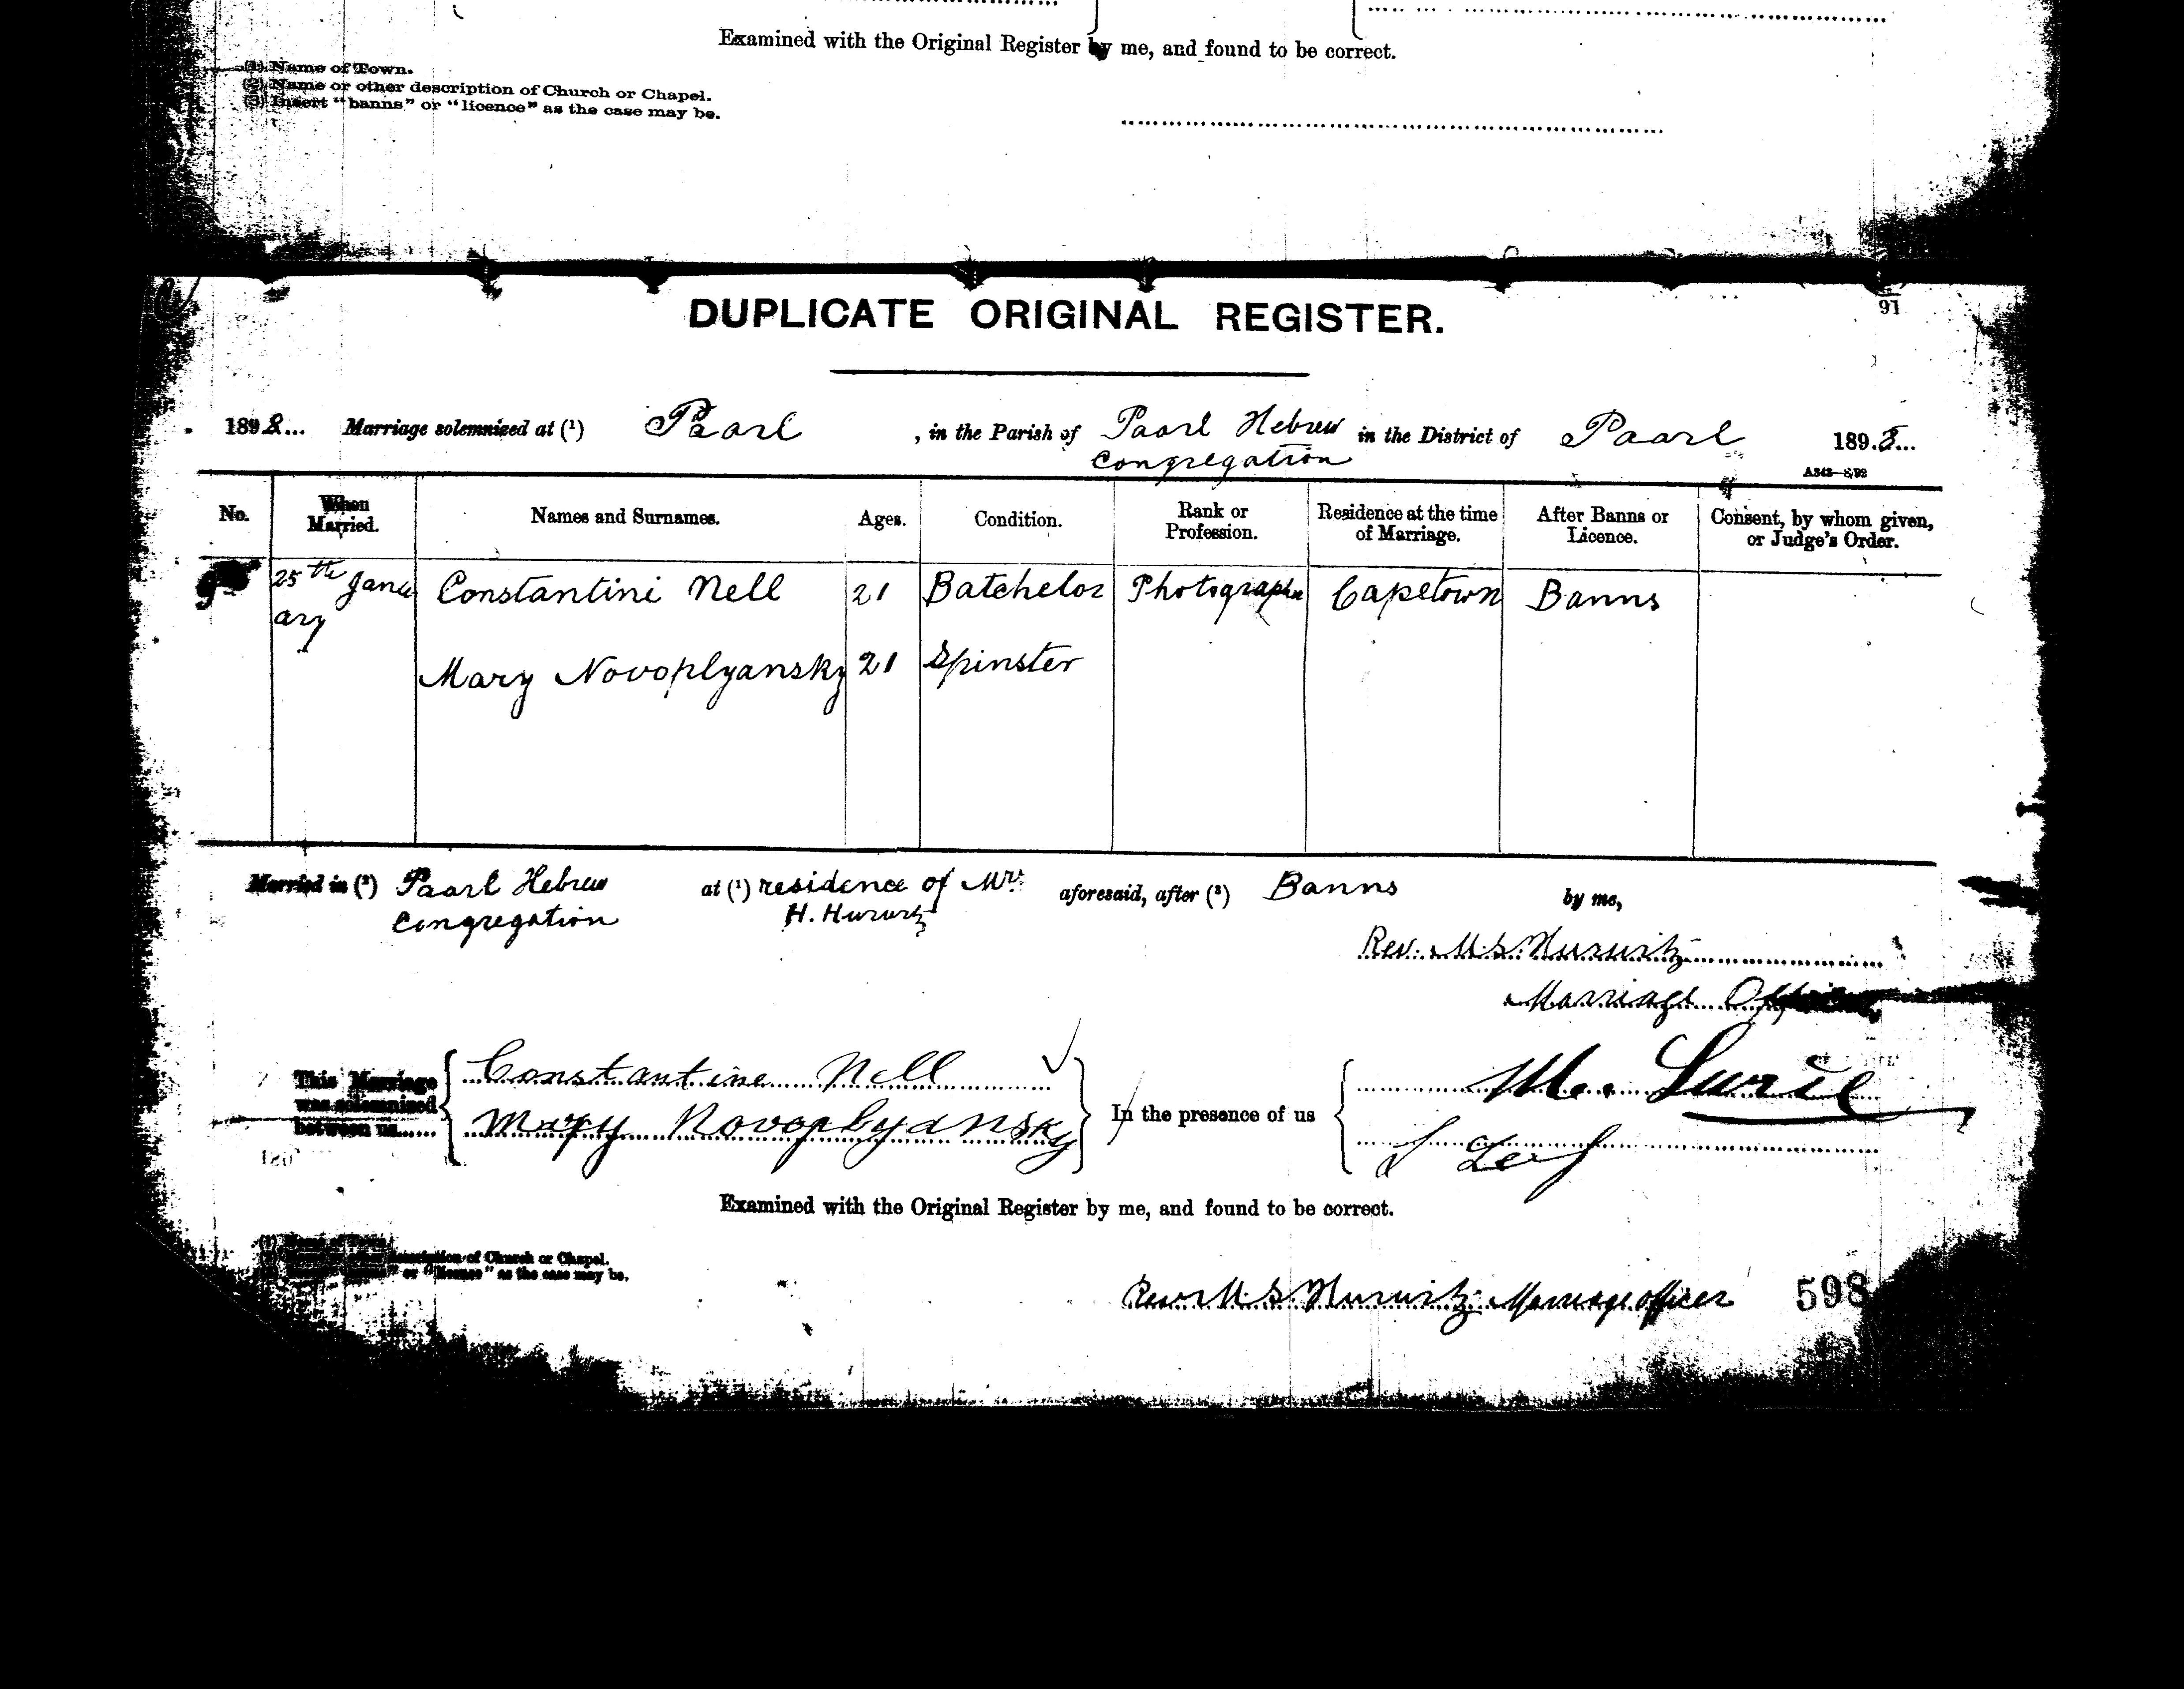 Examined with the Original Register by me, and found to be correct.
(1) Name of Town.
(2) Name or other description of Church or Chapel.
(3) Insert "banns" or "licence" as the case may be.
91
DUPLICATE ORIGINAL REGISTER.
1898... Marriage solemnized at (1) Paarl , in the Parish of Paarl Hebrew in the District of Paarl 189.8...
Congregation
No. When Married. Names and Surnames. Ages. Condition. Rank or Profession. Residence at the time of Marriage. After Banns or Licence. Consent, by whom given, or Judge's Order.
25th Janu Constantini Nell 21 Batchelor Photographer Capetown Banns
ary
Mary Novoplyansky 21 Spinster
Married in (2) Paarl Hebrew at (1) residence of Mr. aforesaid, after (3) Banns by me,
Congregation H. Hururtz
Rev. M. S. Hurwitz
Marriage
This Marriage was solemnized between us...... Constantine Nell In the presence of us M. Lurie
Mary Novoplyansky
Examined with the Original Register by me, and found to be correct.
description of Church or Chapel.
or "licence" as the case may be.
Rev M. S. Hurwitz Marriage officer 598